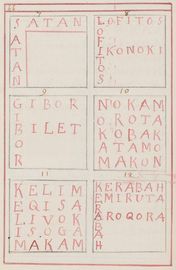 7
SATAN
A
T
A
N
8
LOFITOS
O
F IKONOKI
I
T
O
S
9
GIBOR
I
B BILET
O
R
10
NOKAM
OROTA
KOBAK
ATAMO
MAKON
11
KELIM
EQISA
LIVOK
ISOGA
MAKAM
12
KERABAH
EMIRUTA
R
A ROQORA
B
A
H